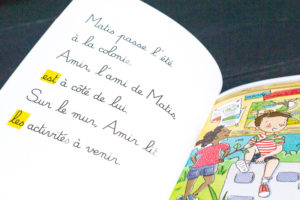 Matis passe l'été
à la colonie.
Amir, l'ami de Matis
est à côté de lui.
Sur le mur, Amir lit
les activités à venir.